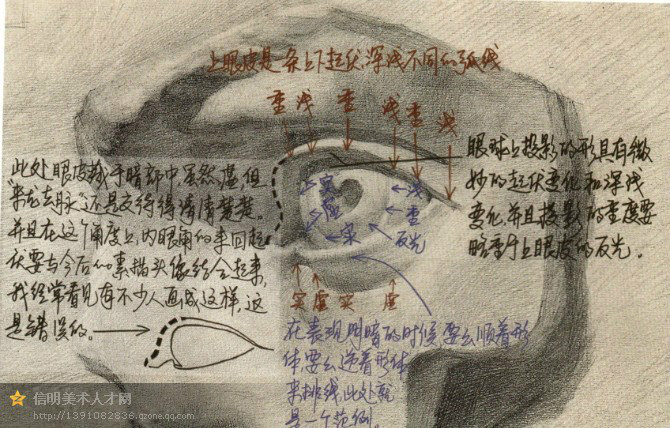 上眼皮是一条上下起伏深浅不同的弧线
重 浅 重 浅 重 浅
此处眼皮藏于暗部中虽然虚,但
"来龙去脉"还是交待得清清楚楚。
并且在这个角度上,内眼角的来回起
伏要与今后的素描头像结合起来,
我经常看见有不少人画成这样,这
是错误的。
眼球上投影的形具有微
妙的起伏变化和深浅
变化,并且投影的重度要
略重于上眼皮的反光。
实 浅
虚 重
实 反光
实 虚 实 虚
在表现明暗的时候要么顺着形
体,要么逆着形体
来排线,此处就
是一个范例。
信明美术人才网
http://1391082836.qzone.qq.com